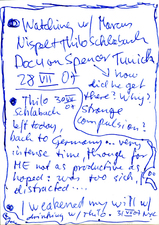 Watching w/ Marcus
Nispel + Thilo Schlabach
Doc on Spencer Tunick
28 VII 07
how
did he get
there? Why?
Strange
compulsion?
Thilo 30 VII 07
Schlabach
left today,
back to Germany... very
intense time, though for
ME not as productive as
hoped: was too sick, &
distracted....
I weakened my will w/
drinking w/ Thilo. 31 VII 07 NYC